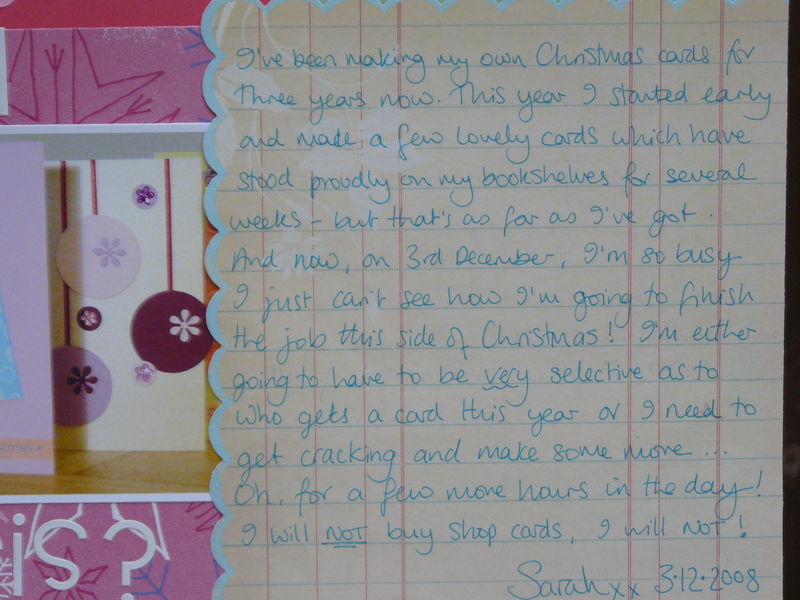 I've been making my own Christmas cards for
three years now. This year I started early
and made a few lovely cards which have
stood proudly on my bookshelves for several
weeks - but that's as far as I've got.
And now, on 3rd December, I'm so busy
I just can't see how I'm going to finish
the job this side of Christmas! I'm either
going to have to be very selective as to
who gets a card this year or I need to
get cracking and make some more ...
Oh, for a few more hours in the day!
I will NOT buy shop cards, I will NOT!
Sarah xx 3.12.2008
is?